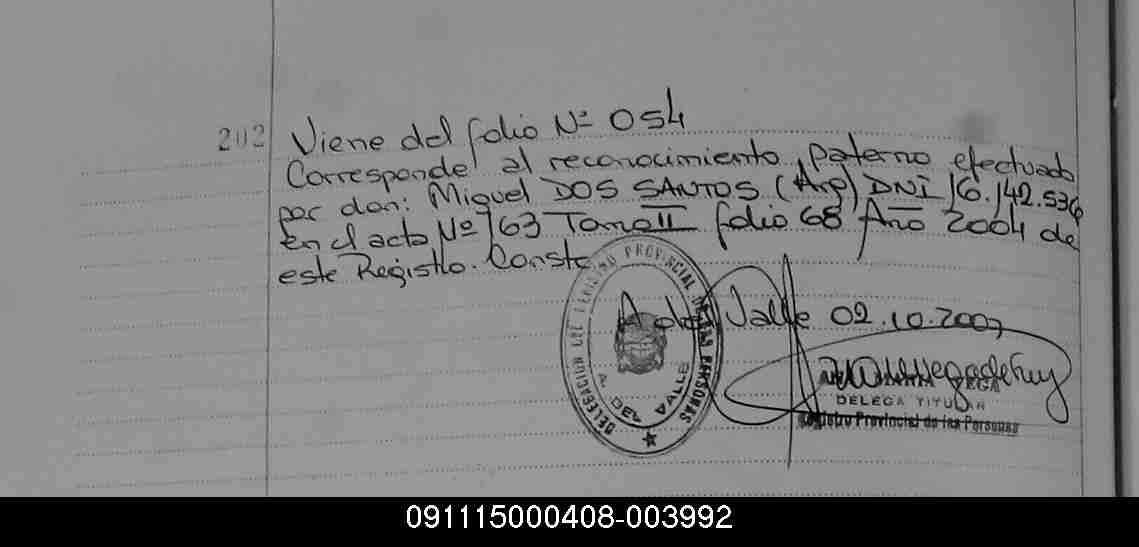 202
Viene del folio Nº 054
Corresponde al reconocimiento paterno efectuado
por don: Miguel DOS SANTOS (Arg) DNI 16.142.536
en el acta Nº 163 Tomo II folio 68 Año 2004 de
este Registro. Conste
A del Valle 02.10.2007
DELEGACION DEL REGISTRO PROVINCIAL DE LAS PERSONAS
A. DEL VALLE
VEGA
DELEGA TITULAR
Registro Provincial de las Personas
091115000408-003992